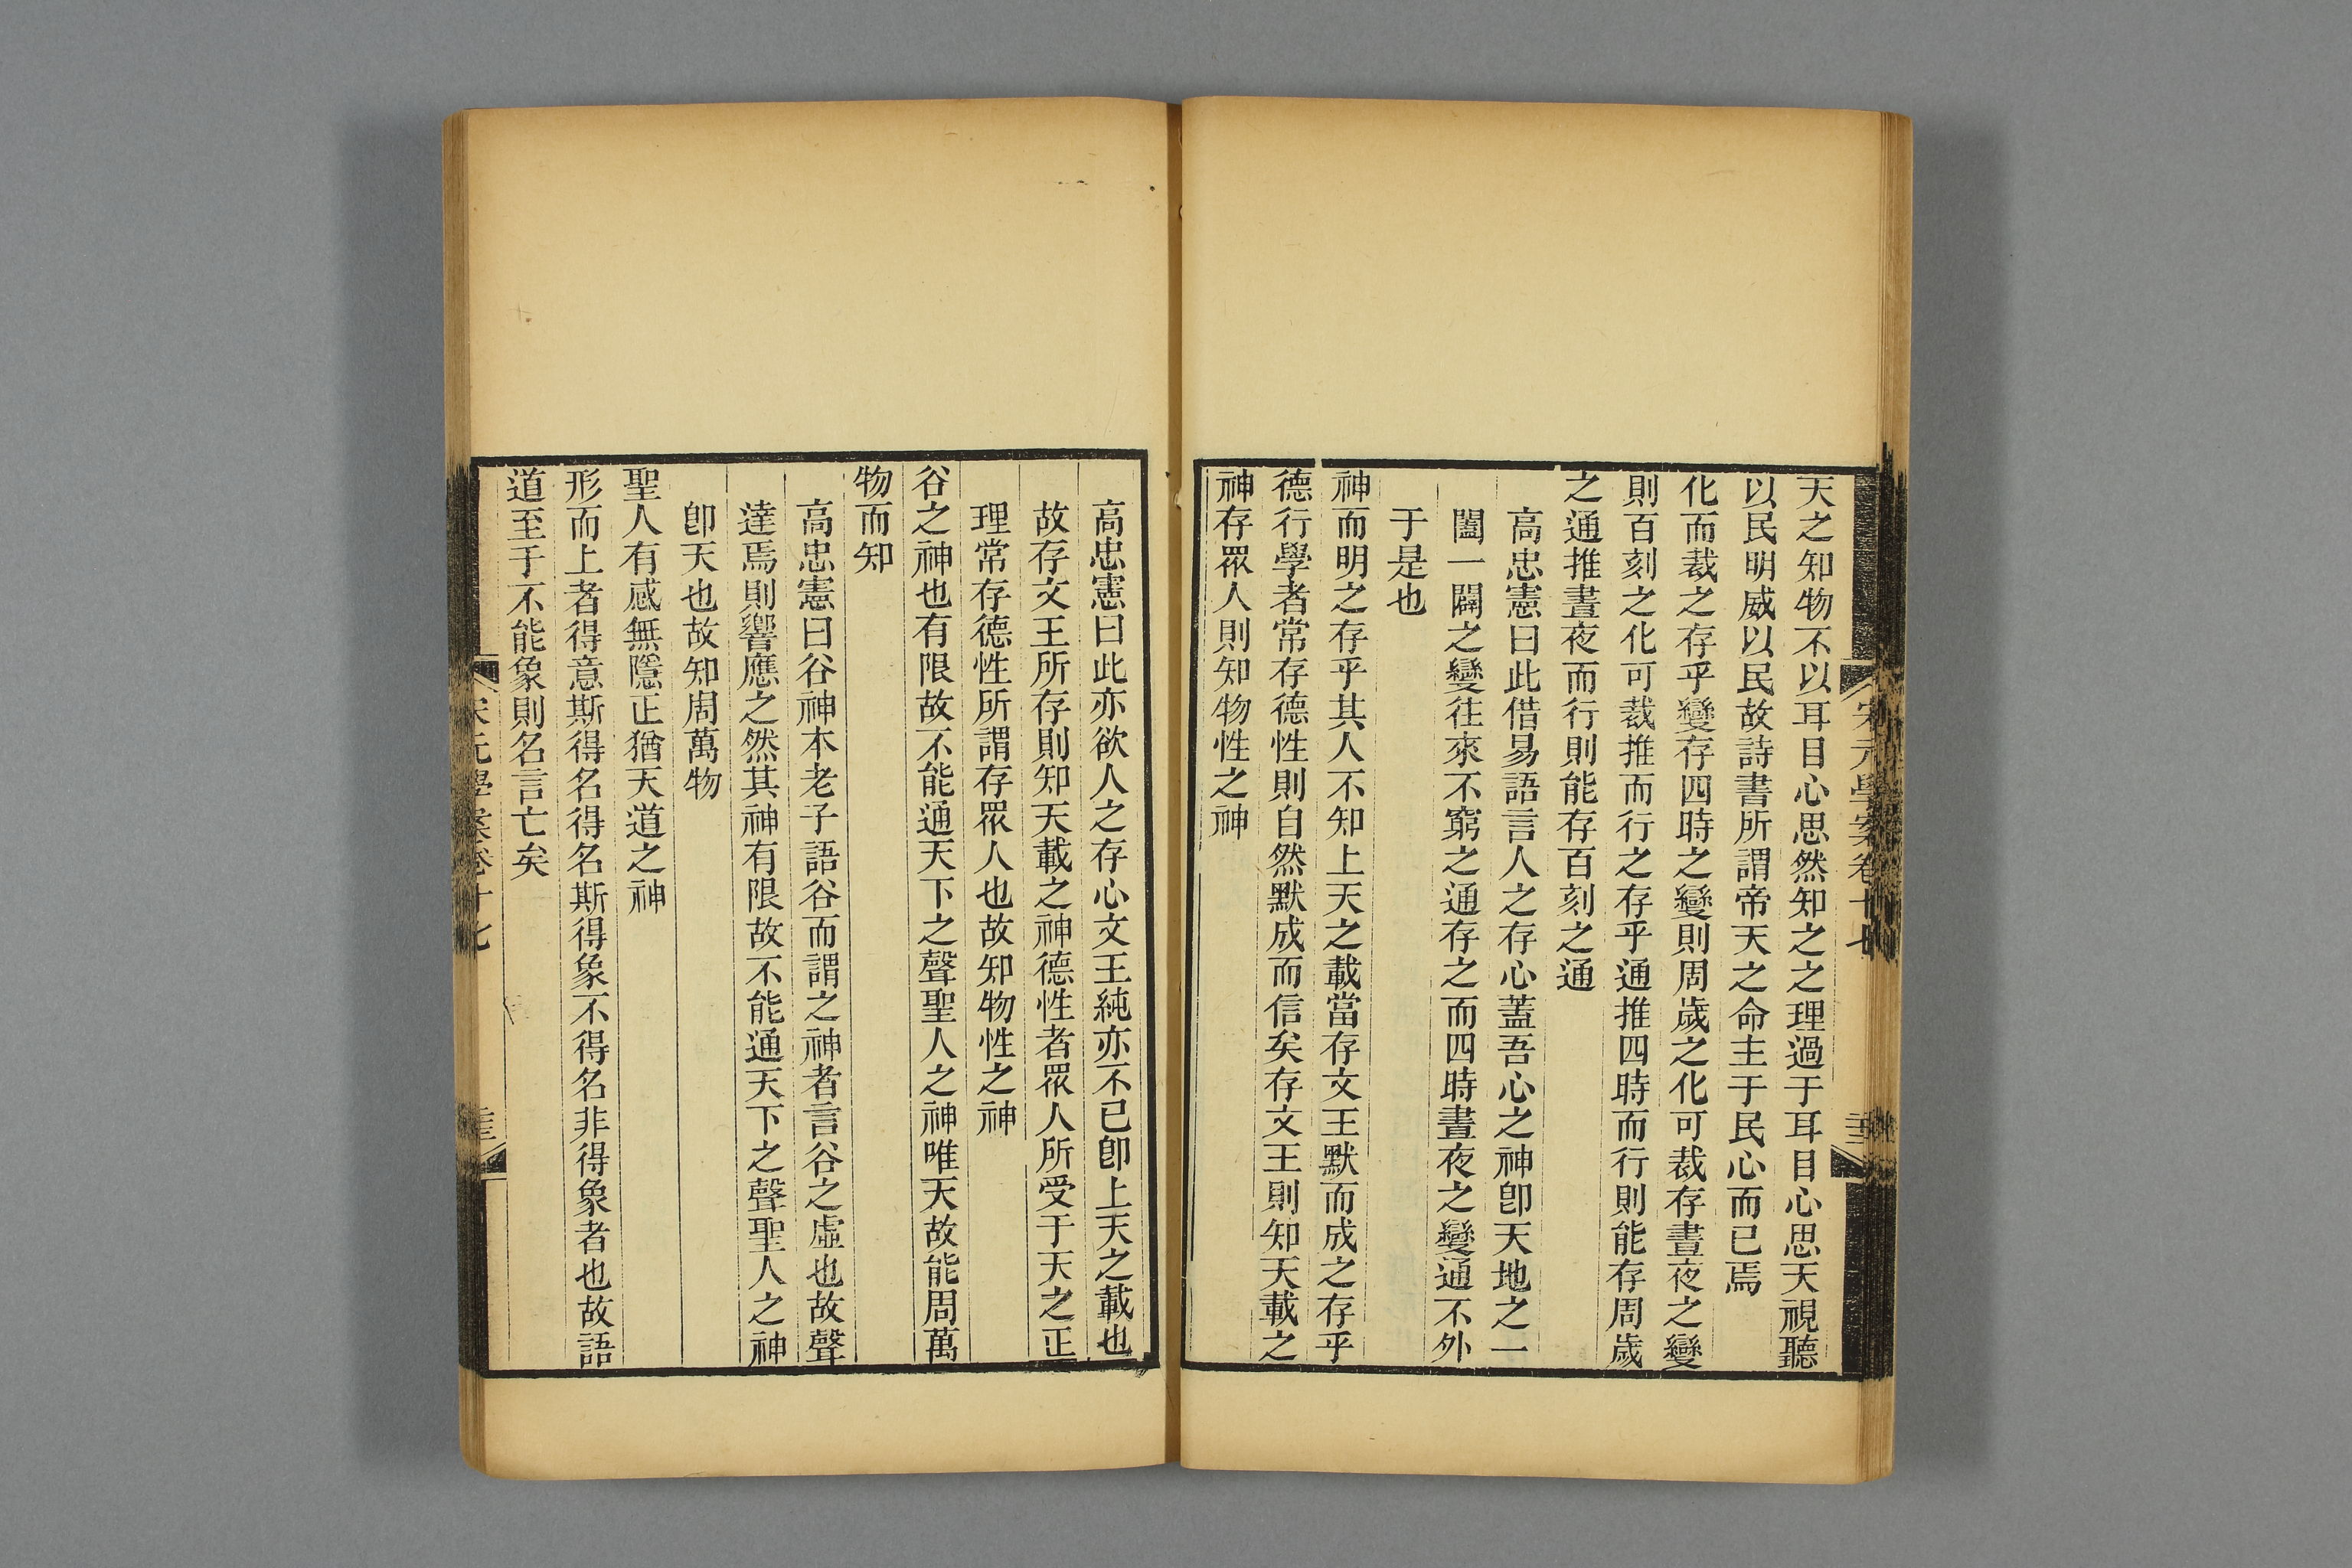 天之知物不以耳目心思然知之之理過于耳目心思天視聽
以民明威以民故詩書所謂帝天之命主于民心而已焉
化而裁之存乎變存四時之變則周歲之化可裁存晝夜之變
則百刻之化可裁推而行之存乎通推四時而行則能存周歲
之通推晝夜而行則能存百刻之通
高忠憲曰此借易語言人之存心蓋吾心之神卽天地之一
闔一闢之變往來不窮之通存之而四時晝夜之變通不外
于是也
神而明之存乎其人不知上天之載當存文王默而成之存乎
德行學者常存德性則自然默成而信矣存文王則知天載之
神存眾人則知物性之神
宋元學案卷十七
高忠憲曰此亦欲人之存心文王純亦不已卽上天之載也
故存文王所存則知天載之神德性者眾人所受于天之正
理常存德性所謂存眾人也故知物性之神
谷之神也有限故不能通天下之聲聖人之神唯天故能周萬
物而知
高忠憲曰谷神本老子語谷而謂之神者言谷之虛也故聲
達焉則響應之然其神有限故不能通天下之聲聖人之神
卽天也故知周萬物
聖人有感無隱正猶天道之神
形而上者得意斯得名得名斯得象不得名非得象者也故語
道至于不能象則名言亡矣
宋元學案卷十七